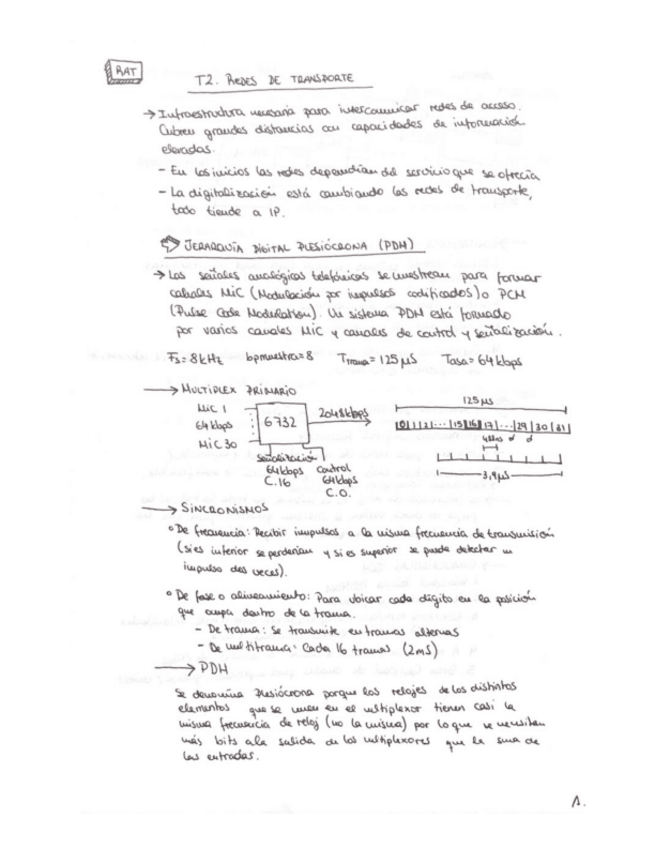 RAT
T2. REDES DE TRANSPORTE
→ Infraestructura necesaria para intercomunicar redes de acceso.
Cubren grandes distancias con capacidades de información
elevadas.
- En los inicios las redes dependían del servicio que se ofrecía
- La digitalización está cambiando las redes de transporte,
todo tiende a IP.
JERARQUÍA DIGITAL PLESIÓCRONA (PDH)
→ Las señales analógicas telefónicas se muestrean para formar
canales MIC (Modulación por impulsos codificados) o PCM
(Pulse Code Modulation). Un sistema PDH está formado
por varios canales MIC y canales de control y señalización.
Fs = 8kHz bpmuestra = 8 Ttrama = 125 µs Tasa = 64 kbps
→ MULTIPLEX PRIMARIO
MIC 1
64 kbps
MIC 30
6732
2048kbps
señalización
64kbps
C.16
Control
64kbps
C.0.
125 µs
0 1 2 ... 15 16 17 ... 29 30 31
3,9µs
→ SINCRONISMOS
° De frecuencia: Recibir impulsos a la misma frecuencia de transmisión
(si es inferior se perderían y si es superior se puede detectar un
impulso dos veces).
° De fase o alineamiento: Para ubicar cada dígito en la posición
que ocupa dentro de la trama.
- De trama: Se transmite en tramas alternas
- De multitrama: Cada 16 tramas (2ms)
→ PDH
Se denomina Plesiócrona porque los relojes de los distintos
elementos que se unen en el multiplexor tienen casi la
misma frecuencia de reloj (no la misma) por lo que se necesitan
más bits a la salida de los multiplexores que la suma de
las entradas.
1.